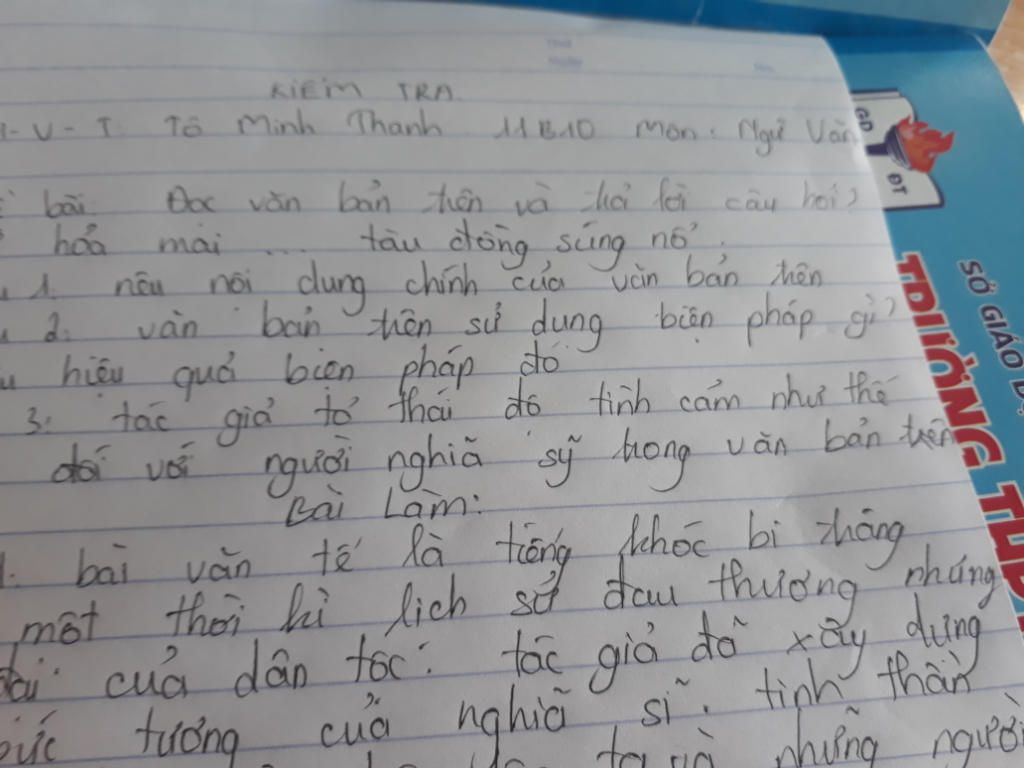 KIỂM TRA
H-V-T. Tô Minh Thanh 11B10 Môn: Ngữ Văn
bài. Đọc văn bản trên và trả lời câu hỏi?
hỏa mai ... tàu đồng súng nổ.
1. nêu nôi dung chính của văn bản trên
2. văn bản trên sử dung biện pháp gì?
hiệu quả biện pháp đó
3. tác giả tỏ thái đô tình cảm như thế
đối với người nghiã sỹ trong văn bản trên
Bài Làm:
1. bài văn tế là tiếng khóc bi tráng
một thời kì lich sử đau thương nhưng
đại của dân tôc. tác giả đã xây dưng
bức tương của nghiã sĩ. tinh thần
những người
GD
ĐT
SỞ GIÁO D
TRƯỜNG THP